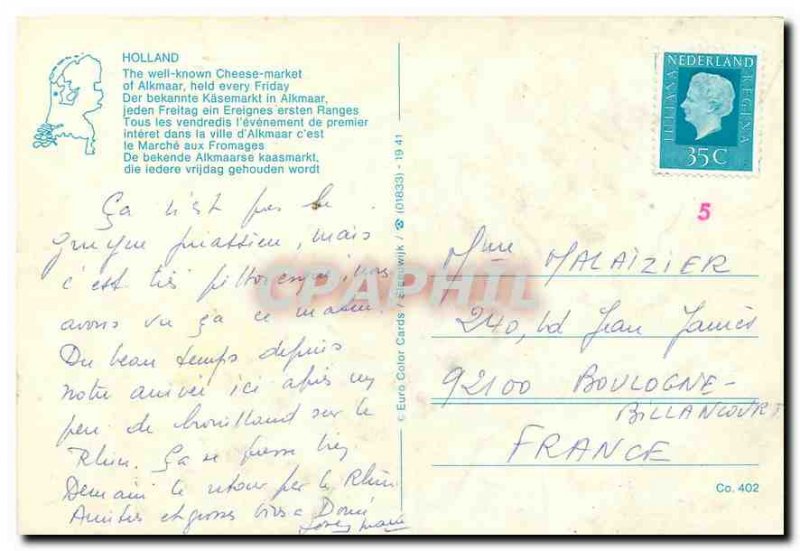 HOLLAND
The well-known Cheese-market
of Alkmaar, held every Friday
Der bekannte Käsemarkt in Alkmaar,
jeden Freitag ein Ereignes ersten Ranges
Tous les vendredis l'événement de premier
intéret dans la ville d'Alkmaar c'est
le Marché aux Fromages
De bekende Alkmaarse kaasmarkt,
die iedere vrijdag gehouden wordt
Ça n'est pas le
mais
c'est très pittoresque, nous
avons vu ça ce matin.
Du beau temps depuis
notre arrivée ici après un
peu de brouillard sur le
Rhin. Ça se passe bien
Demain le retour par le Rhin
Amitiés et grosses bises à
© Euro Color Cards / Sleeuwijk / ☎ (01833) - 19 41
JULIANA
NEDERLAND
REGINA
35C
5
CPAPHIL
Mme MALAÏZIER
240, bd Jean Jaurès
92100 BOULOGNE-
BILLANCOURT
FRANCE
Co. 402